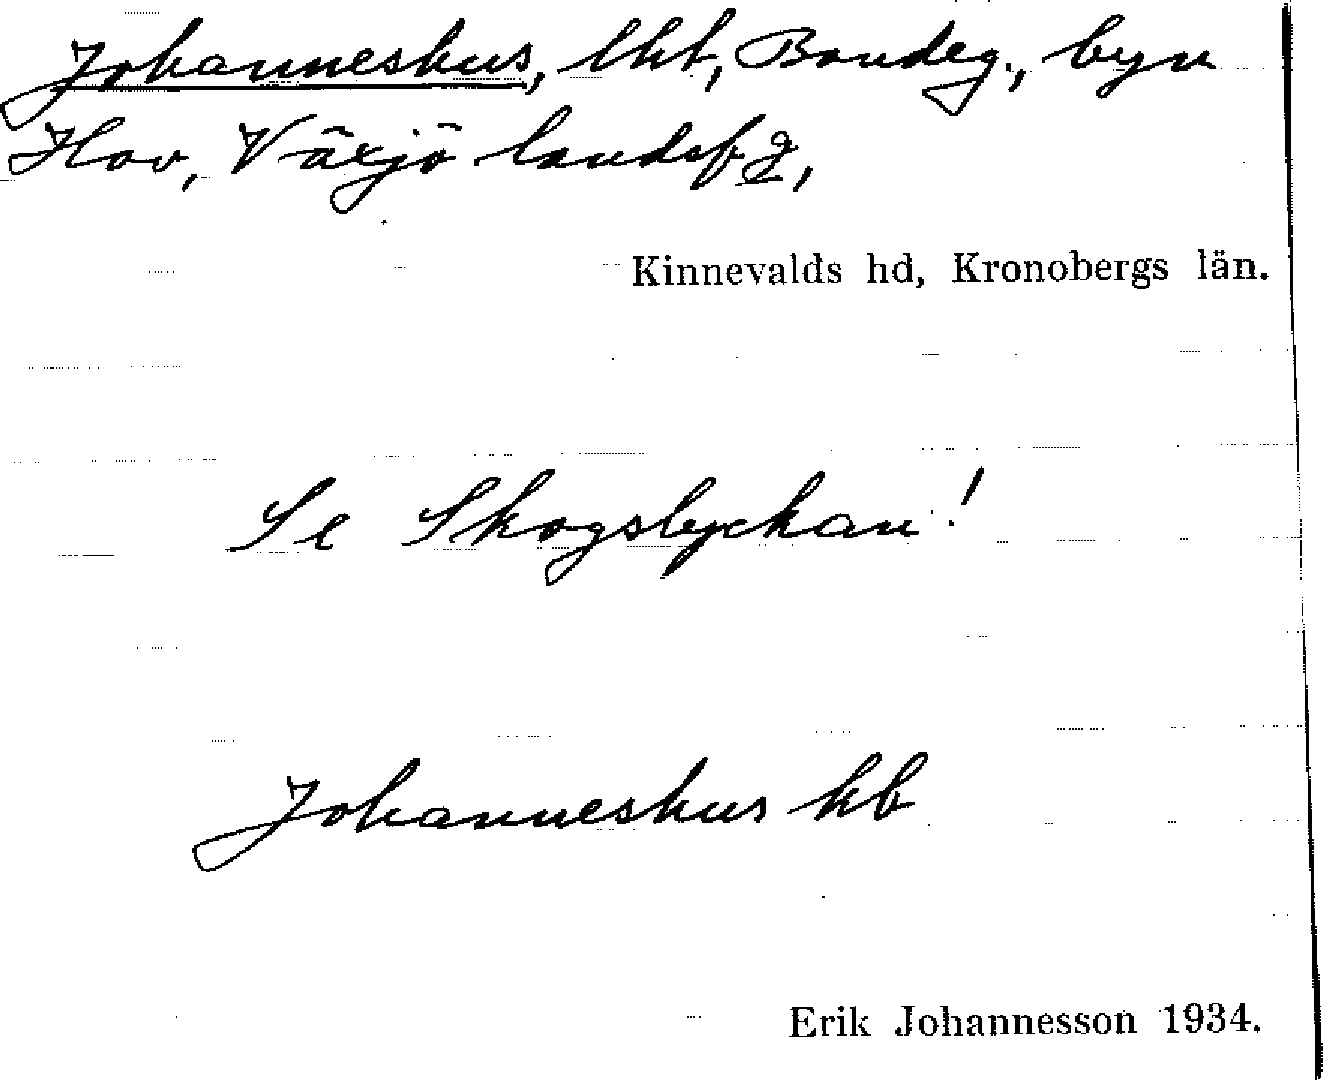 Johanneshus, lht, Bondeg., byn
Hov, Växjö landsf g,
Kinnevalds hd, Kronobergs län.
Se Skogslyckan!
Johanneshus kb
Erik Johannesson 1934.